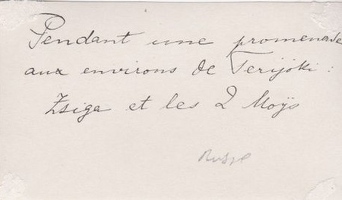 Pendant une promenade
aux environs de Terijoki :
Zsiga et les 2 Moÿs